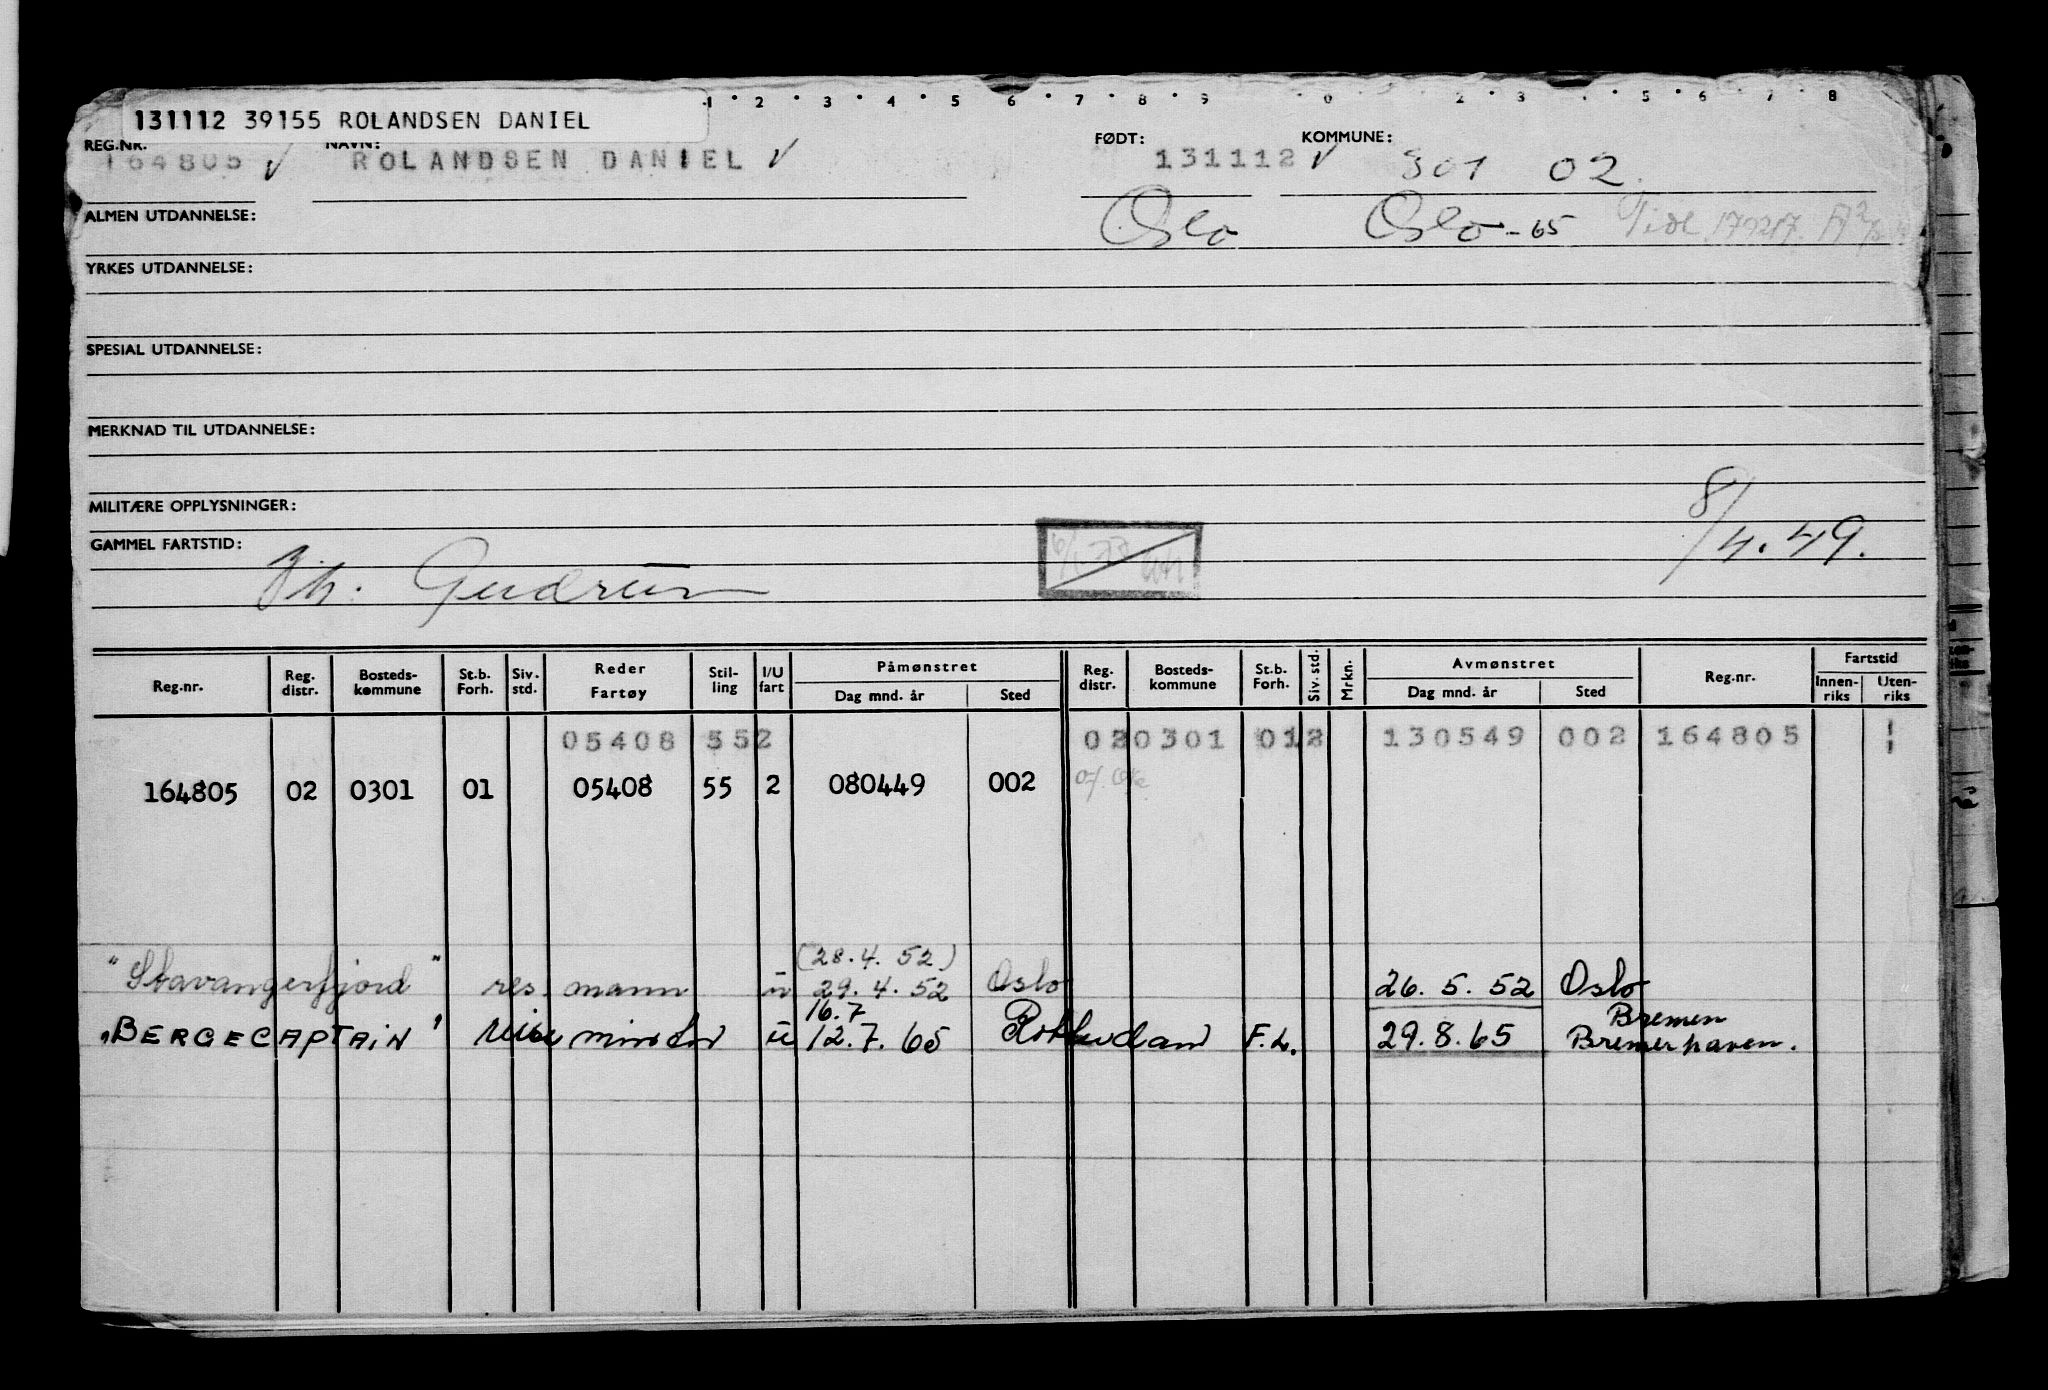 1 · 2 · 3 · 4 · 5 6 · 7 8 · 9 0 2 · 3 5 · 6 · 7 · 8
131112 39155 ROLANDSEN DANIEL
REG.NR. NAVN: FØDT: KOMMUNE:
164805 √ ROLANDSEN DANIEL √ 131112 √ 301 02.
ALMEN UTDANNELSE: Oslo Oslo - 65 Tidl.
YRKES UTDANNELSE:
SPESIAL UTDANNELSE:
MERKNAD TIL UTDANNELSE:
MILITÆRE OPPLYSNINGER:
GAMMEL FARTSTID: 8/4.49.
Gudrun
Reg.nr. Reg. distr. Bosteds-kommune St.b. Forh. Siv. std. Reder Fartøy Stil-ling I/U fart Påmønstret Dag mnd. år Sted Reg. distr. Bosteds-kommune St.b. Forh. Siv. std. Mrkn. Avmønstret Dag mnd. år Sted Reg.nr. Fartstid Innen-riks Uten-riks
05408 552 020301 012 130549 002 164805
164805 02 0301 01 05408 55 2 080449 002
(28.4.52)
"Stavangerfjord" res. mann u 29.4.52 Oslo 26.5.52 Oslo
16.7 Bremen
"BERGECAPTAIN" u 12.7.65 Rotterdam F.L. 29.8.65 Bremerhaven.